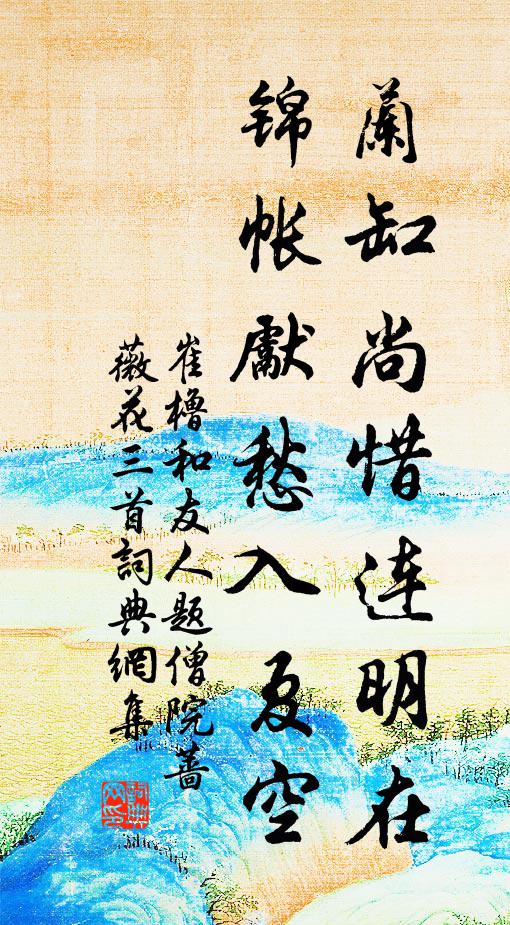 蘭缸尚惜連明在
錦帳獻愁入夏空
崔櫓和友人題僧院薔
薇花三首詞典網集